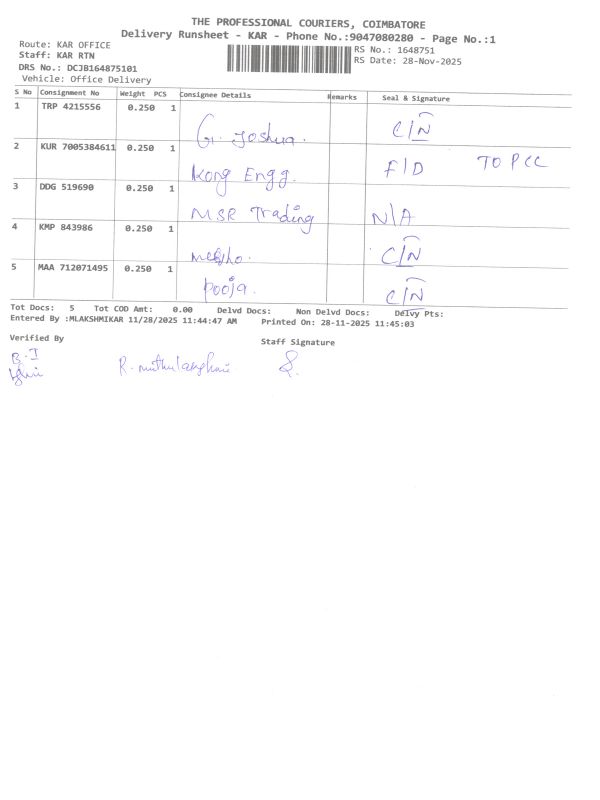 THE PROFESSIONAL COURIERS, COIMBATORE
Delivery Runsheet - KAR - Phone No.:9047080280 - Page No.:1
Route: KAR OFFICE
Staff: KAR RTN
RS No.: 1648751
RS Date: 28-Nov-2025
DRS No.: DCJB164875101
Vehicle: Office Delivery
S No Consignment No Weight PCS Consignee Details Remarks Seal & Signature
1 TRP 4215556 0.250 1 G. Joshua. C/N
2 KUR 7005384611 0.250 1 Kong Engg. F/D TO PCC
3 DDG 519690 0.250 1 MSR Trading N/A
4 KMP 843986 0.250 1 C/N
5 MAA 712071495 0.250 1 Pooja. C/N
Tot Docs: 5 Tot COD Amt: 0.00 Delvd Docs: Non Delvd Docs: Delvy Pts:
Entered By :MLAKSHMIKAR 11/28/2025 11:44:47 AM Printed On: 28-11-2025 11:45:03
Verified By Staff Signature